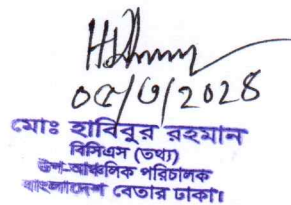 ০৫/৩/2028
মোঃ হাবিবুর রহমান
বিসিএস (তথ্য)
উপ-আঞ্চলিক পরিচালক
বাংলাদেশ বেতার ঢাকা।